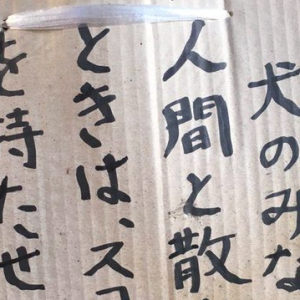 犬のみな
人間と散
ときは、スコ
を持たせ